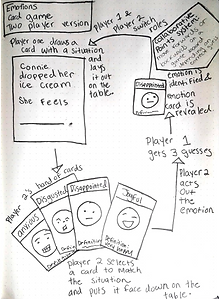 Emotions
Card game
Two player version
Player one draws a
card with a situation
and
lays
it out
on the
table.
Connie
dropped her
ice cream
She feels
Player 1 &
Player 2
switch
roles
Collaborative
Points system
emotion is
identified &
emotion
card is
revealed.
Disappointed
Player 1
gets 3 guesses
Player 2
acts
out
the
emotion
Player 2's hand of cards
Anxious
Disgusted
Disappointed
Joyful
Definition
Definition
player 2 selects
a card to match
the situation
and puts it face down on the
table.